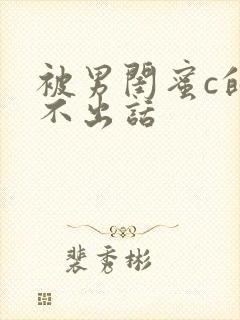 被男闺蜜c的
不出話
裴秀彬